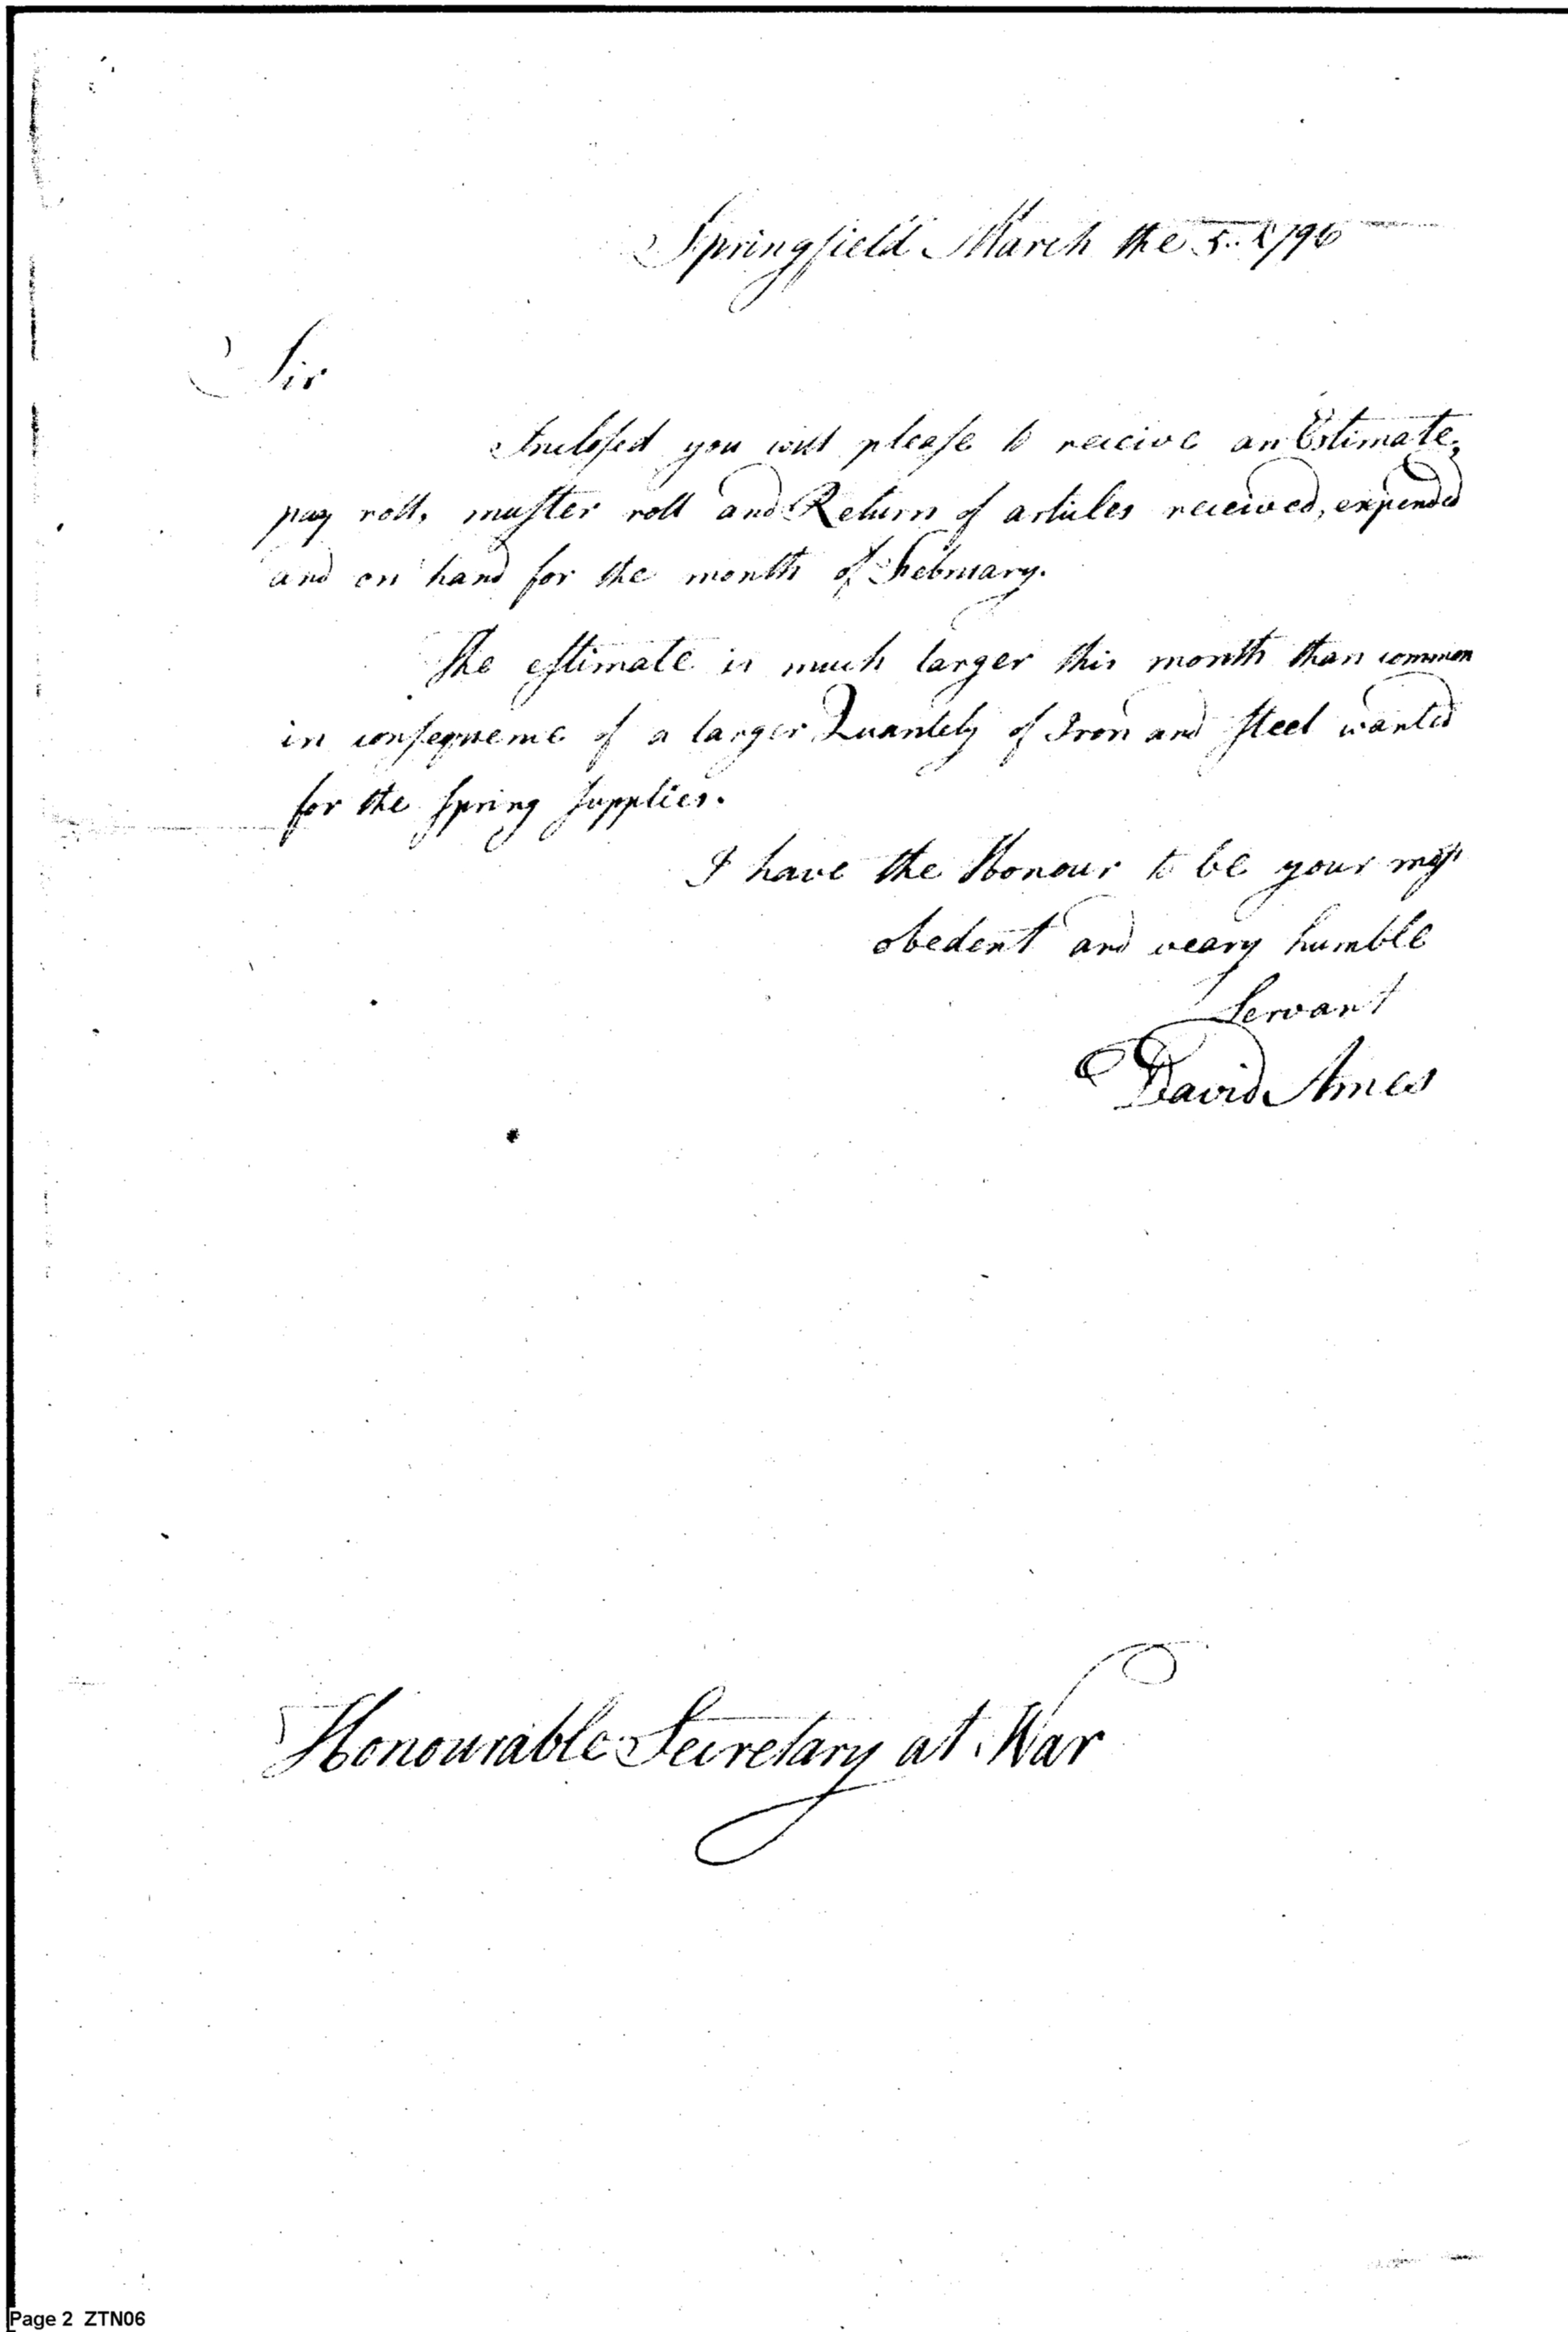 Springfield March the 5.. 1796
Sir
Inclosed you will please to receive an Estimate,
pay roll, muster roll and Return of articles received, expended
and on hand for the month of February.
The estimate is much larger this month than common
in consequence of a larger Quantety of Iron and Steel wanted
for the Spring Supplies.
I have the Honour to be your
obedent and veary humble
Servant
David Ames
Honourable Secretary at War
Page 2 ZTN06